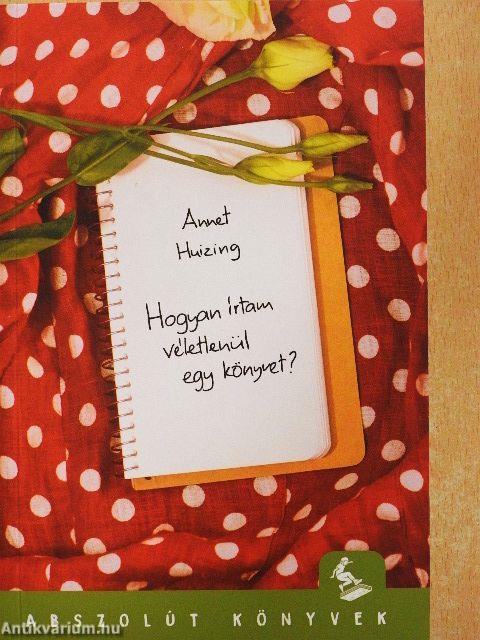 Annet
Huizing
Hogyan írtam
véletlenül
egy könyvet?
ABSZOLÚT KÖNYVEK
Antikvarium.hu